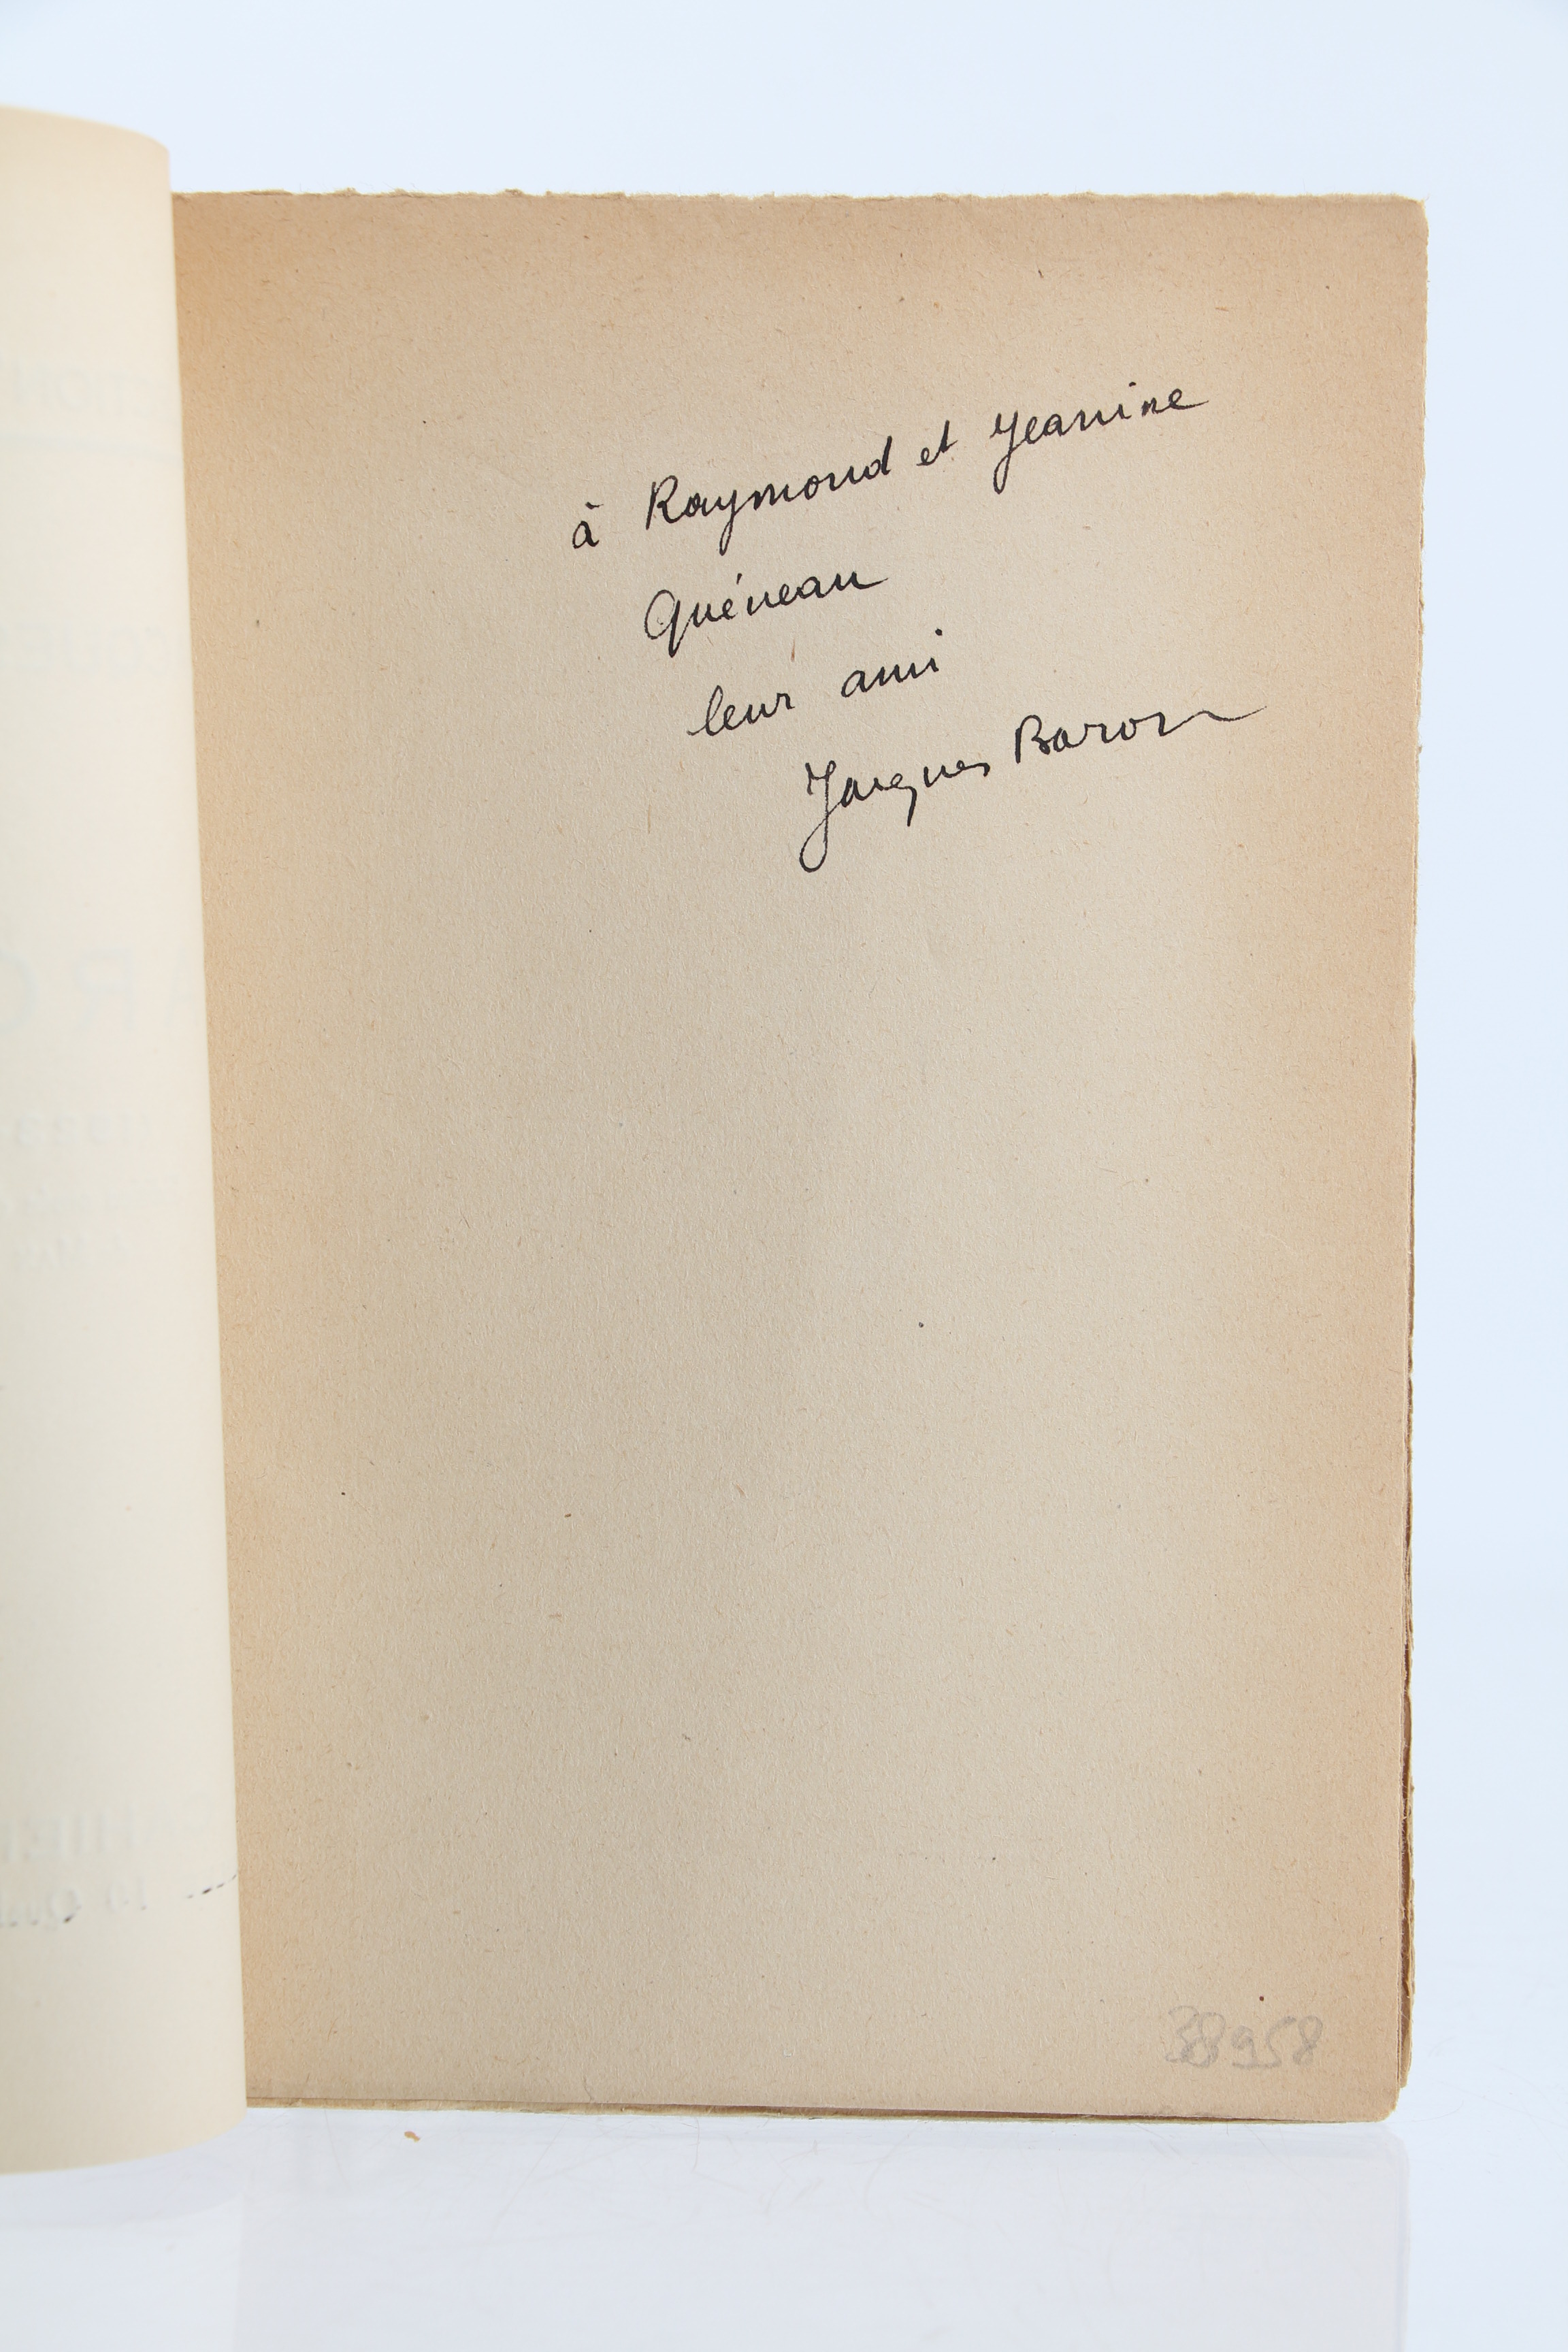 à Raymond et Jeanine
Quéneau
leur ami
Jacques Baron
38958